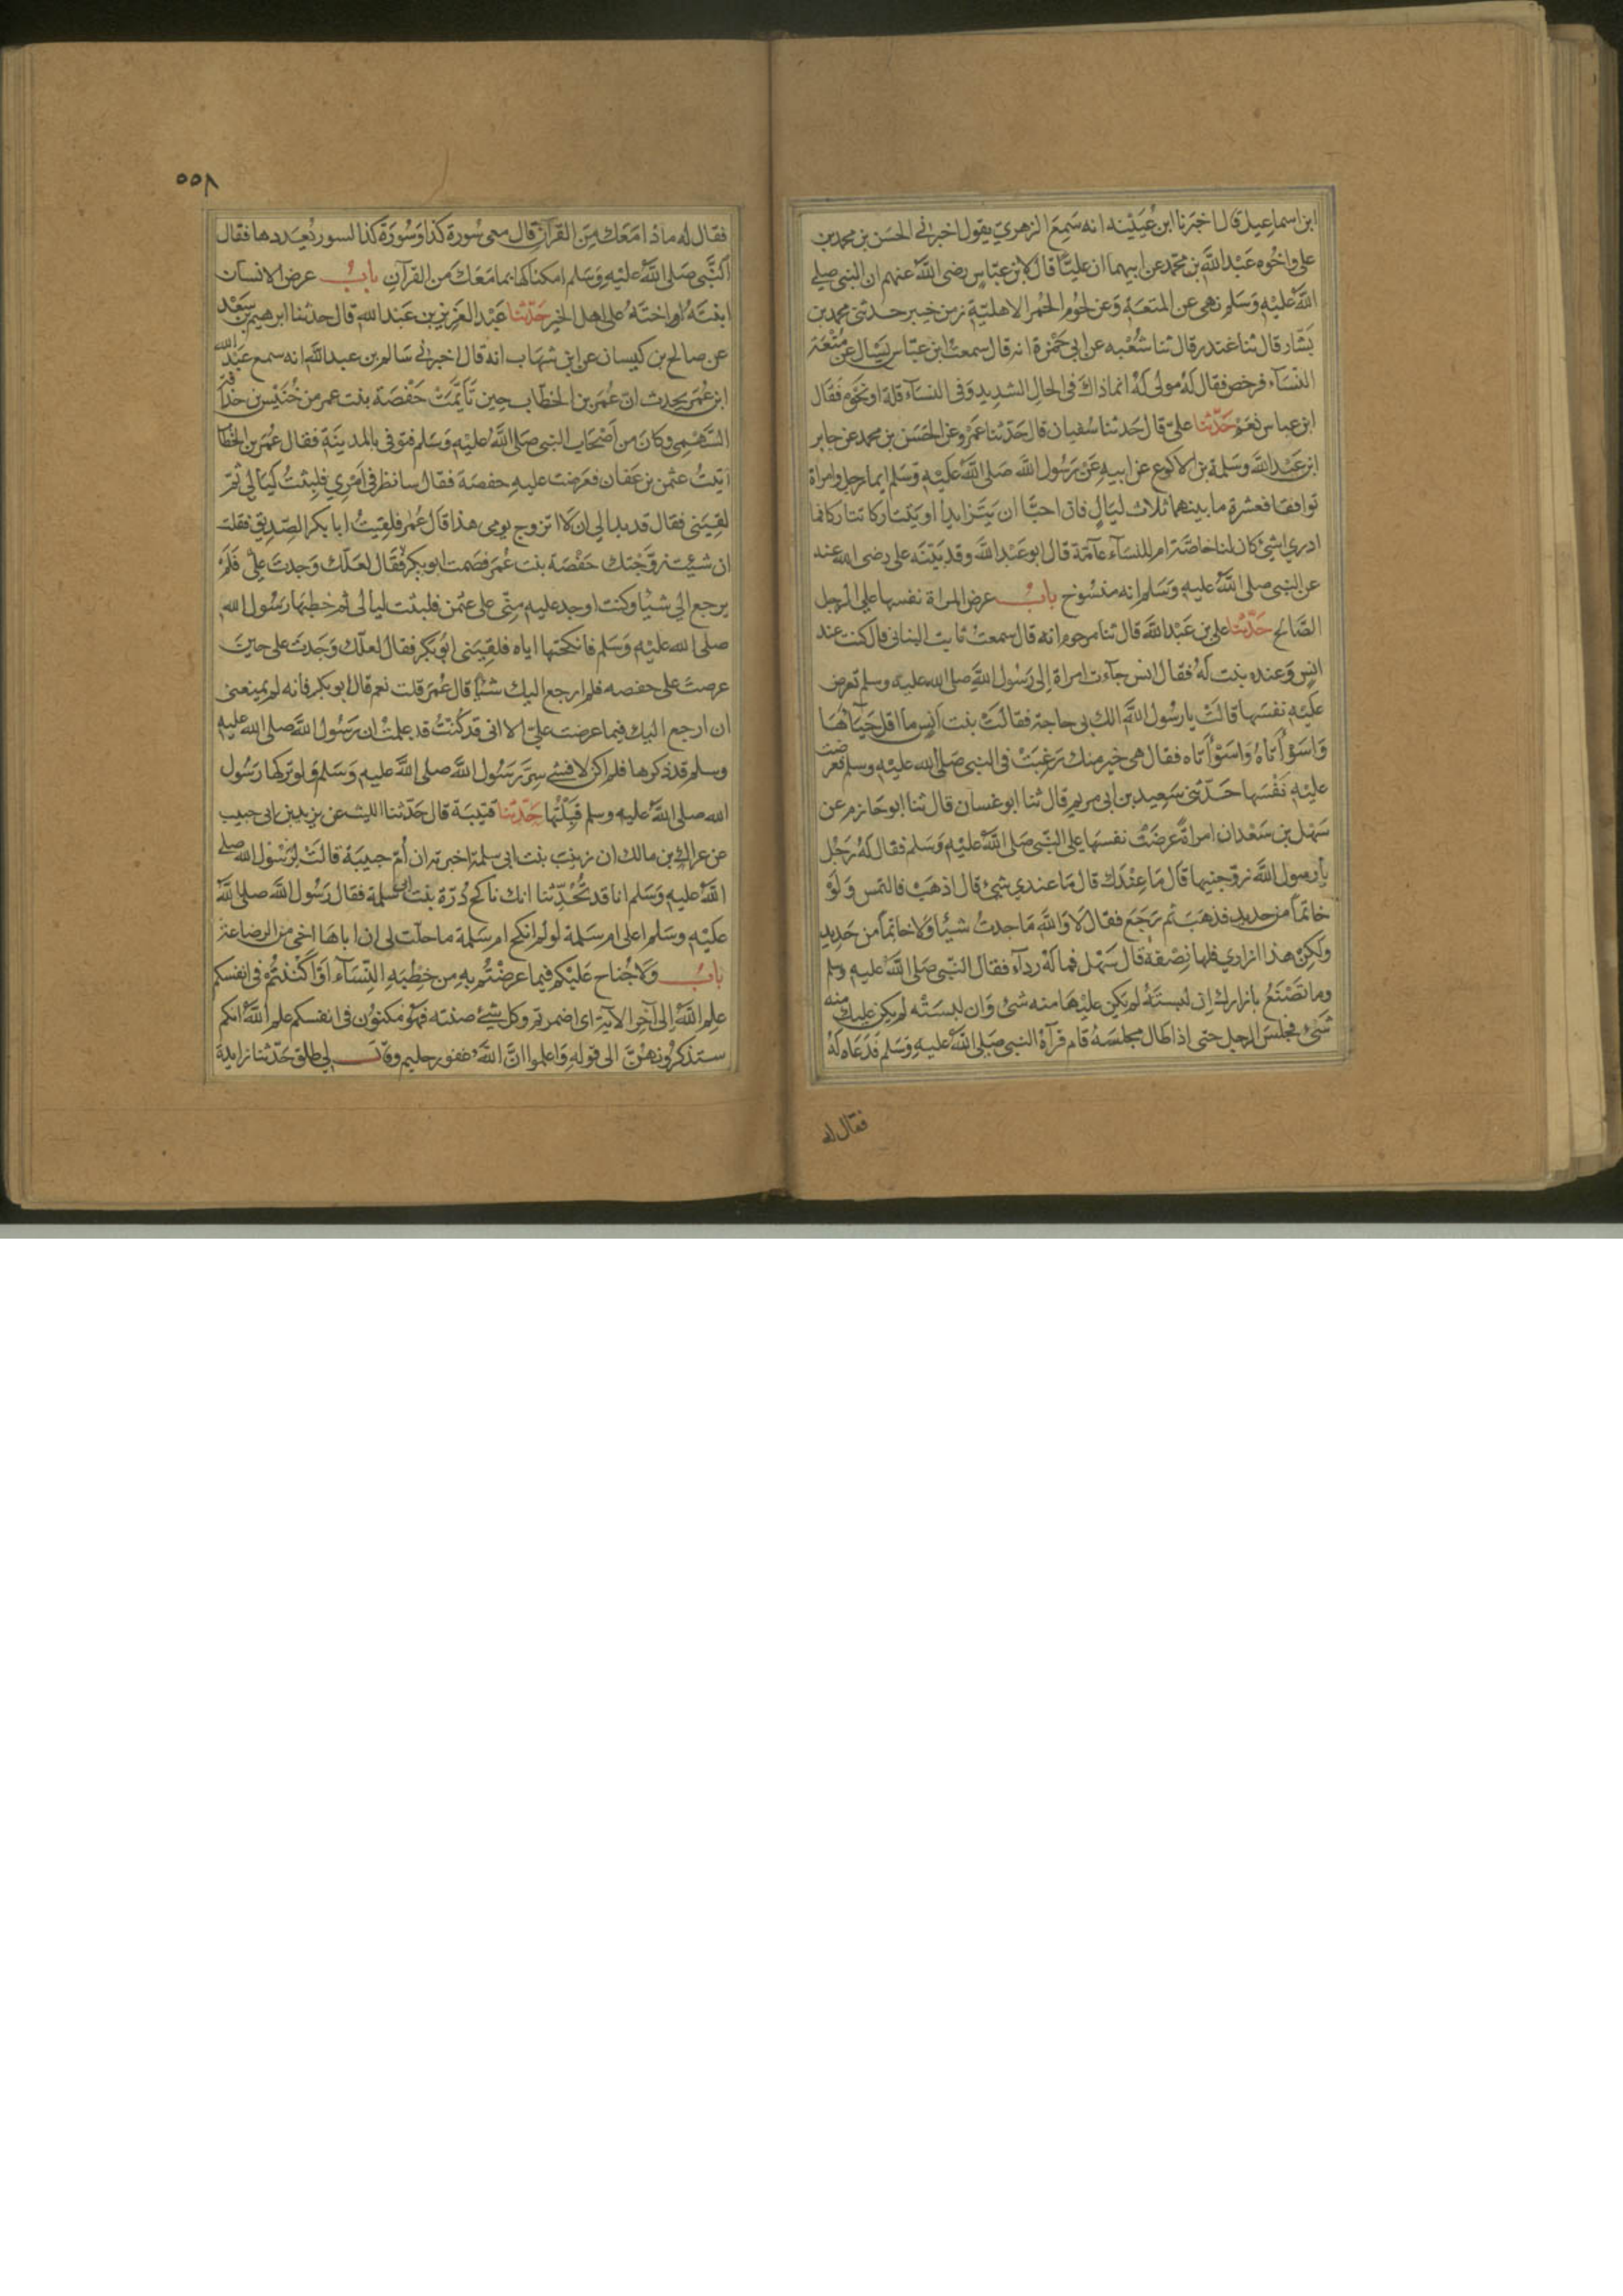 ابن اسماعيل قال اخبرنا ابن عيينه انه سمع الزهري يقول اخبرني الحسن بن محمد بن
علي واخوه عبد الله بن محمد عن ابيهما ان عليًّا قال لابن عباس رضي الله عنهم ان النبي صلي
الله عليه وسلم نهى عن المتعة وعن لحوم الحمر الاهلية زمن خيبر حدثني محمد بن
بشار قال ثنا غندر قال ثنا شعبه عن ابي حمزة انه قال سمعت ابن عباس يسال عن متعة
النساء فرخص فقال له مولى له انما ذاك في الحال الشديد وفي النساء قلة او نحوه فقال
ابن عباس نعم حدثنا علي قال حدثنا سفيان قال حدثنا عمرو عن الحسن بن محمد عن جابر
ابن عبد الله وسلمة بن الاكوع عن ابيه عن رسول الله صلى الله عليه وسلم ايما رجل وامراة
توافقا فعشرة ما بينهما ثلاث ليال فان احبّا ان يتزايدا او يتتاركا تتاركا فما
ادري اشئ كان لنا خاصّة ام للنساء عآمّة قال ابو عبد الله وقد بيّنه على رضى الله عنه
عن النبي صلى الله عليه وسلم انه منسوخ باب عرض المراة نفسها علي الرجل
الصّالح حدثنا علي بن عبد الله قال ثنا مرحوم انه قال سمعت ثابت البناني قال كنت عند
انس وعنده بنت له فقال انس جآءت امراة الى رسول الله صلى الله عليه وسلم تعرض
عليه نفسها قالت يا رسول الله الك بى حاجة فقالت بنت انس ما اقل حيآئها
واسوأتاه واسوأتاه فقال هى خير منك رغبت في النبي صلى الله عليه وسلم فعرضت
عليه نفسها حدّثني سعيد بن ابى مريم قال ثنا ابو غسان قال ثنا ابو حازم عن
سهل بن سعد ان امراة عرضت نفسها على النّبي صلى الله عليه وسلم فقال له رجل
يا رسول الله زوّجنيها قال ما عندك قال ما عندي شئ قال اذهب فالتمس ولو
خاتمًا من حديد فذهب ثم رجع فقال لا والله ما وجدت شيئًا ولا خاتمًا من حديد
ولكن هذا ازاري فلها نصفه قال سهل فما له ردآء فقال النبي صلى الله عليه وسلم
وما تصنع بازارك ان لبسته لم يكن عليها منه شئ وان لبسته لم يكن عليك منه
شئ فجلس الرجل حتى اذا طال مجلسه قام فرآه النبي صلى الله عليه وسلم فدعاه له
فقال له
٥٥٨
فقال له ماذا معك من القرآن قال معى سورة كذا وسورة كذا لسور يعددها فقال
النّبي صلى الله عليه وسلم امكناكها بما معك من القرآن باب عرض الانسان
ابنته او اخته على اهل الخير حدثنا عبد العزيز بن عبد الله قال حدثنا ابرهيم بن سعد
عن صالح بن كيسان عن ابن شهاب انه قال اخبرني سالم بن عبد الله انه سمع عبد الله
ابن عمر يحدث ان عمر بن الخطاب حين تأيّمت حفصة بنت عمر من خنيس بن حذافة
السّهمي وكان من اصحاب النبي صلى الله عليه وسلم فتوفى بالمدينة فقال عمر بن الخطا
اتيت عثمن بن عفان فعرضت عليه حفصة فقال سانظر في امرى فلبثت ليالي ثم
لقينى فقال قد بدا لى ان لا اتزوج يومى هذا قال عمر فلقيت ابا بكر الصّديق فقلت
ان شئت زوّجتك حفصة بنت عمر فصمت ابو بكر فقال لعلّك وجدت علىّ فلم
يرجع الي شيئا وكنت اوجد عليه منّى على عثمن فلبثت ليالى ثم خطبها رسول الله
صلى الله عليه وسلم فانكحتها اياه فلقينى ابو بكر فقال لعلّك وجدت على حين
عرضت على حفصه فلم ارجع اليك شئًا قال عمر قلت نعم قال ابو بكر فانه لم يمنعنى
ان ارجع اليك فيما عرضت علىّ الا انى قد كنت قد علمت ان رسول الله صلى الله عليه
وسلم قد ذكرها فلم اكن لافشى سرّ رسول الله صلى الله عليه وسلم ولو تركها رسول
الله صلى الله عليه وسلم قبلتها حدثنا قتيبة قال حدّثنا الليث عن يزيد بن ابى حبيب
عن عراك بن مالك ان زينب بنت ابى سلمة اخبرته ان أمّ حبيبة قالت لرسول الله صلى
الله عليه وسلم انا قد تحدّثنا انك ناكح درّة بنت ابى سلمة فقال رسول الله صلى الله
عليه وسلم اعلى ام سلمة لو لم انكح ام سلمة ما حلّت لي ان اباها اخى من الرضاعة
باب ولا جناح عليكم فيما عرضتم به من خطبه النّسآء او اكننتم في انفسكم
علم الله الى آخر الآية اى اضمرتم وكل شئ صنته فهو مكنون في انفسكم علم الله انكم
ستذكرونهنّ الى قوله واعلموا انّ الله غفور حليم وقال لي طلق حدّثنا زايدة